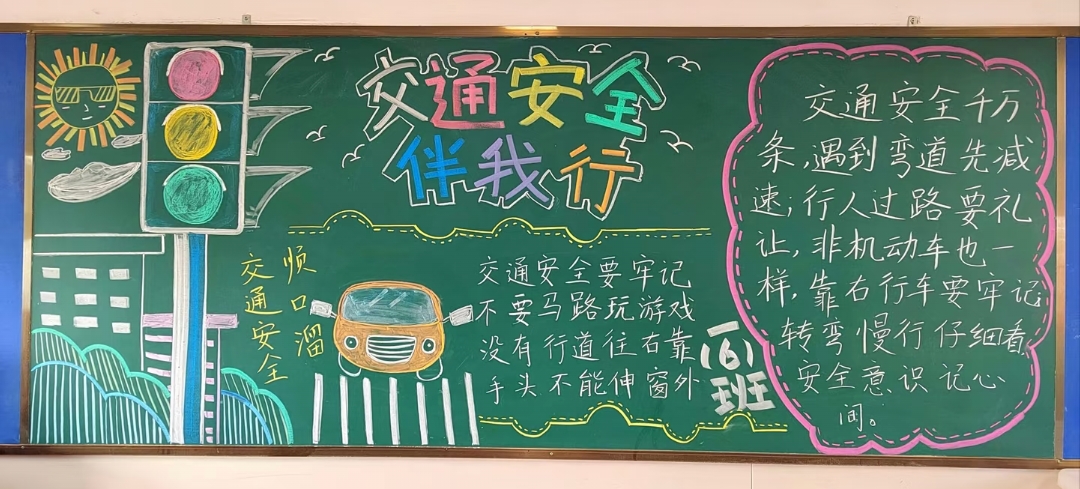 交通安全
伴我行
顺口溜
交通安全
交通安全要牢记
不要马路玩游戏
没有行道往右靠
手头不能伸窗外
一
(6)
班
交通安全千万
条,遇到弯道先减
速;行人过路要礼
让,非机动车也一
样,靠右行车要牢记
转弯慢行仔细看,
安全意识记心
间。